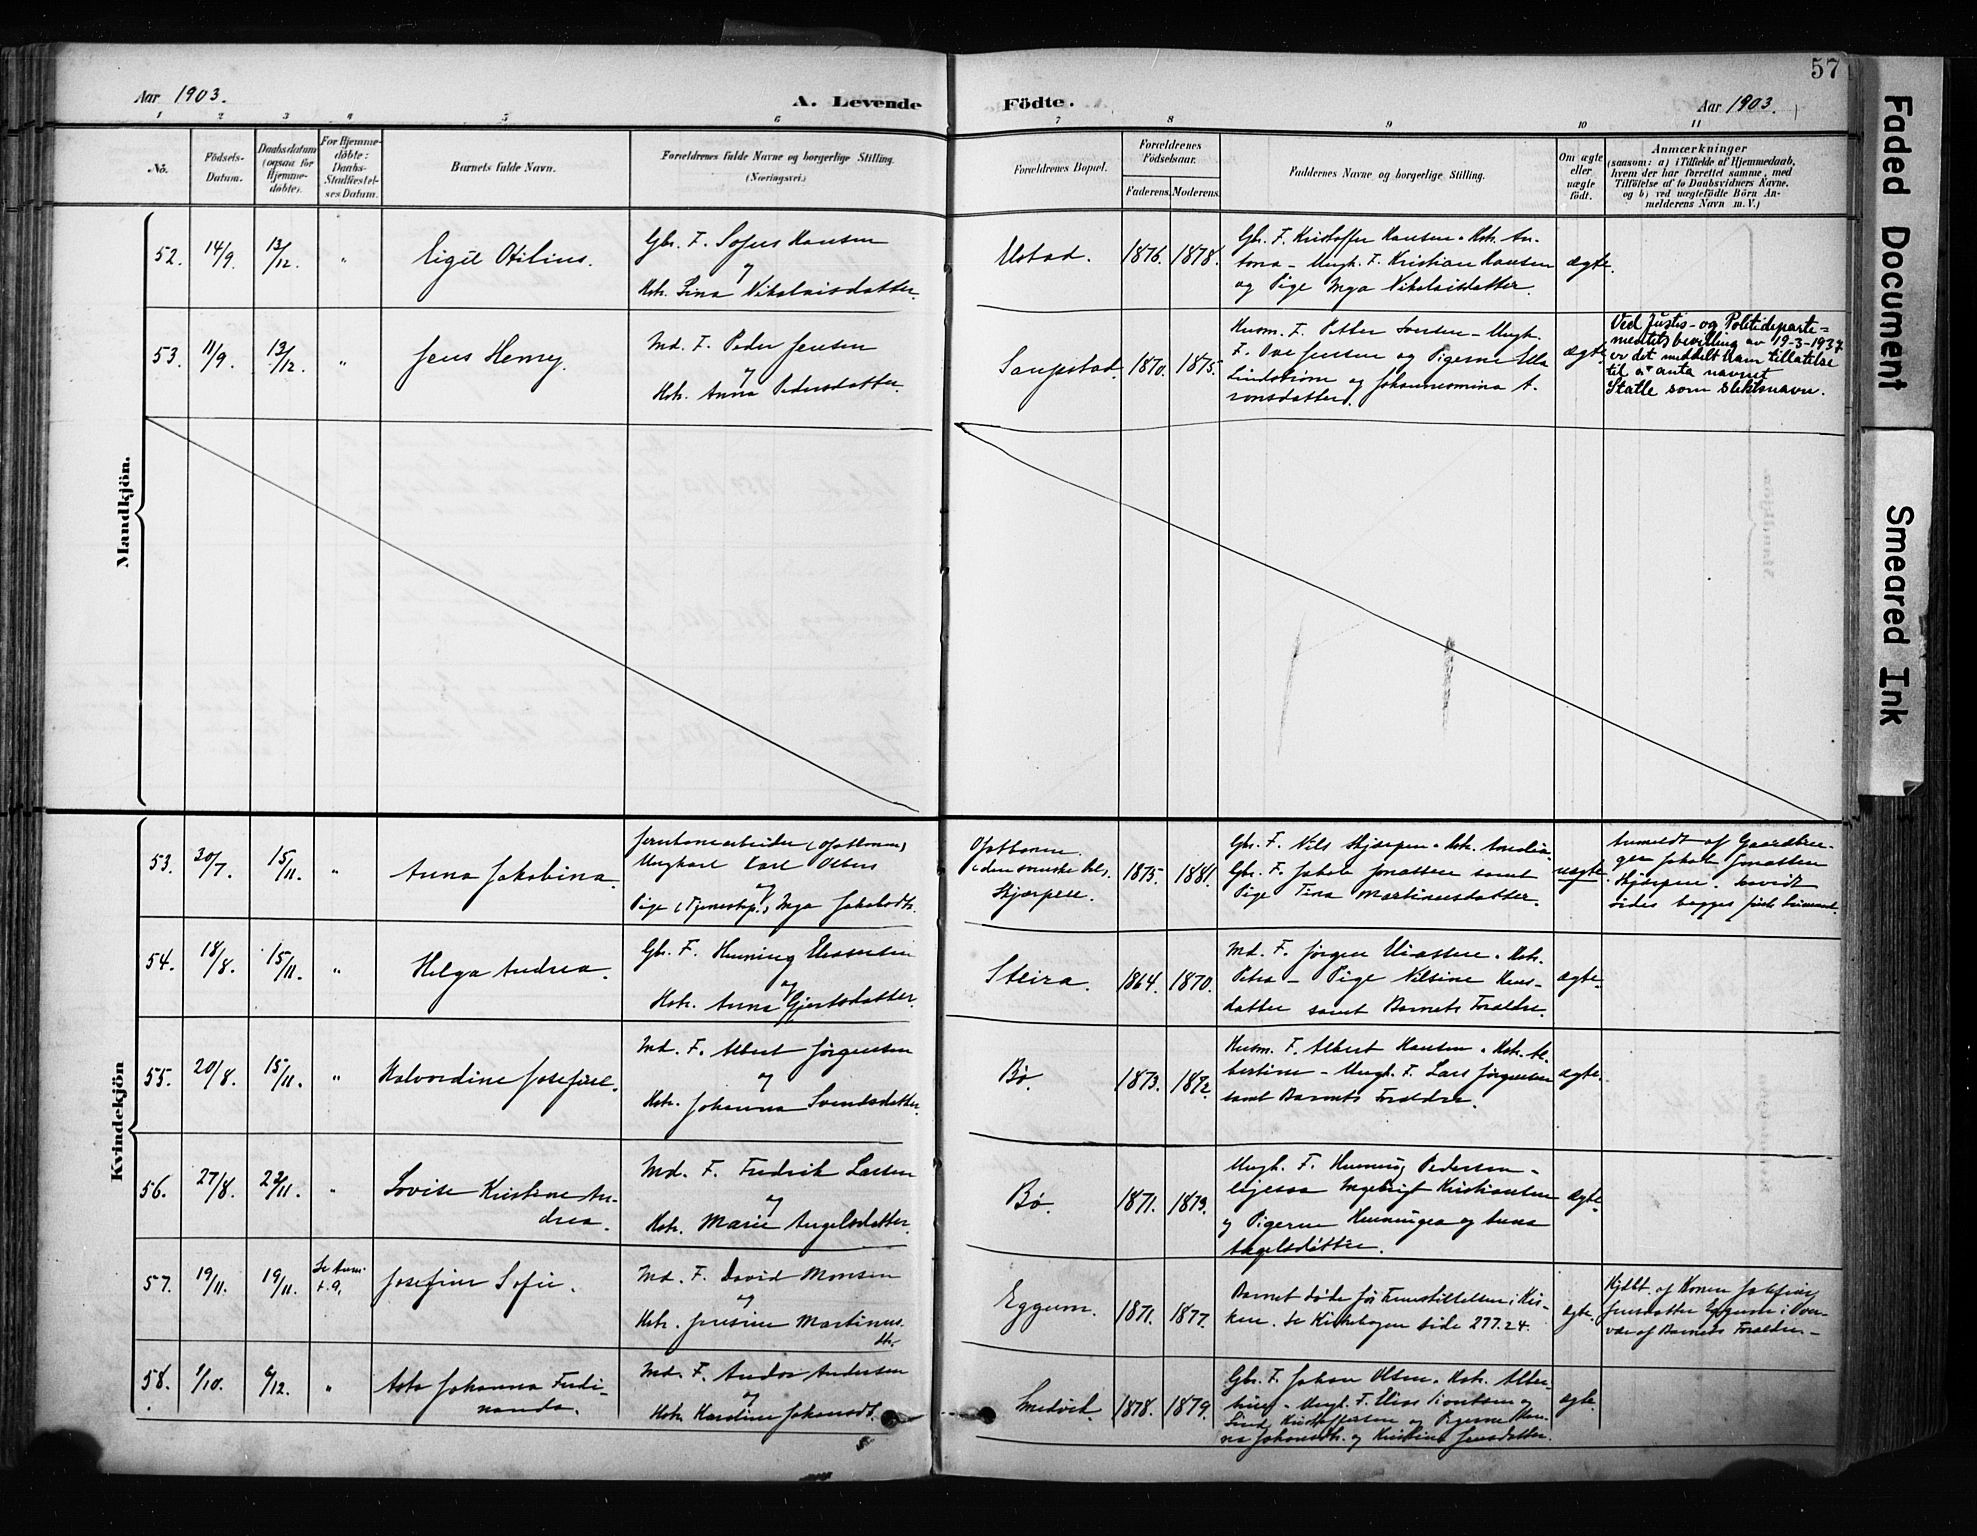 57
Aar 1903.
A. Levende
Födte.
Aar 1903.
1 2 3 4 5 6 7 8 9 10 11
No.
Födsels-
Datum.
Daabsdatum
(ogsaa for
Hjemme-
döbte).
For Hjemme-
döbte:
Daabs-
Stadfæstel-
ses Datum.
Barnets fulde Navn.
Forældrenes fulde Navne og borgerlige Stilling.
(Næringsvei.)
Forældrenes Bopæl.
Forældrenes
Födselsaar.
Faderens.
Moderens.
Faddernes Navne og borgerlige Stilling.
Om ægte
eller
uægte
födt.
Anmærkninger
(saasom: a) i Tilfælde af Hjemmedaab,
hvem der har forrettet samme, med
Tilföielse af to Daabsvidners Navne,
og b) ved uægtefödte Börn An-
melderens Navn m. V.)
Mandkjön.
52.
14/9.
13/12.
"
Eigil Otilius.
Gbr. F. Sofus Hansen
og
Hstr. Lina Nikolaisdatter.
Ustad.
1876.
1878.
Gbr. F. Kristoffer Hansen. Hstr. An-
tona - Ungk. F. Kristian Hansen
og Pige Inga Nikolaisdatter.
ægte.
53.
11/9.
13/12.
"
Jens Henry.
Md. F. Peder Jensen
og
Hstr. Anna Pedersdatter.
Saupstad.
1870.
1875.
Husm. F. Petter Iversen - Ungk.
F. Ove Jensen og Pigerne Ella
Lindstrøm og Johanneomina A-
ronsdatter.
ægte.
Ved Justis- og Politideparte-
mentets bevilling av 19-3-1937
er det meddelt ham tillatelse
til å anta navnet
Statle som slektsnavn.
Kvindekjön
53.
30/7.
15/11.
"
Anna Jakobina.
Jernbanearbeider (Ofotbanen)
Ungkarl Karl Olsen
og
Pige (Tjenestep.) Inga Jakobsdtr.
Ofotbanen
Skjærpen.
1875.
1881.
Gbr. F. Nils Skjærpen. Hstr. Amalia.
Gbr. F. Jakob Jonassen samt
Pige Tina Martinusdatter.
uægte.
Anmeldt af Gaardbru-
ger Jakob Jonassen
Skjærpen.
begges
54.
18/8.
15/11.
"
Helga Andrea.
Gbr. F. Henning
og
Hstr. Anna Gjertsdatter.
Steira.
1864.
1870.
Md. F. Jørgen Eliassen. Hstr.
Petra - Pige Nilsine Hans-
datter samt Barnets Forældre.
ægte.
55.
20/8.
15/11.
"
Halvordine Josefine.
Md. F. Albert Jørgensen
og
Hstr. Johanna Svendsdatter.
Bø.
1873.
1872.
Husm. F. Albert Hansen. Hstr. Al-
bertine - Ungk. F. Lars Jørgensen
samt Barnets Forældre.
ægte.
56.
27/8.
22/11.
"
Lovise Kristine An-
drea.
Md. F. Fredrik Larsen
og
Hstr. Marie Angelsdatter.
Bø.
1871.
1879.
Ungk. F. Henning Pedersen -
Ingebrigt Kristiansen
og Pigerne Henningea og Anna
Angelsdatter.
ægte.
57.
19/11.
19/11.
Se Anm.
Josefine Sofie.
Md. F. David Monsen
og
Hstr. Jensine Martinus-
dtr.
Eggum.
1871.
1877.
Barnet døde før Fremstillelsen i Kir-
ken. Se Kirkebogen side 277.24.
ægte.
Hjdbt. af Konen Josefine
Jensdatter Eggum i Over-
vær af Barnets Forældre.
58.
1/10.
6/12.
"
Asta Johanna Ferdi-
nanda.
Md. F. Andor Andersen
og
Hstr. Karoline Johansdt.
Smedvik.
1878.
1879.
Gbr. F. Johan Olsen. Hstr. Alber-
tine - Ungk. F. Elias og
Kristoffersen og Pigerne Han-
na Johansdtr. og Kristine Jensdatter.
ægte.
Faded Document
Smeared Ink